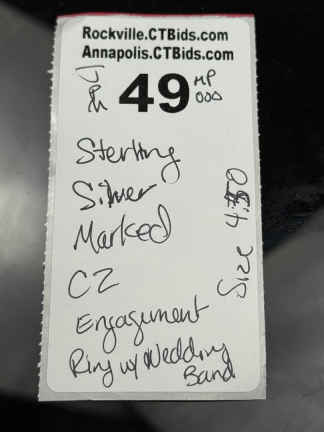 Rockville.CTBids.com
Annapolis.CTBids.com
49
MP
000
Sterling
Silver
Marked
CZ
Engagument
Ring w/ Wedding
Band
Size 4.50